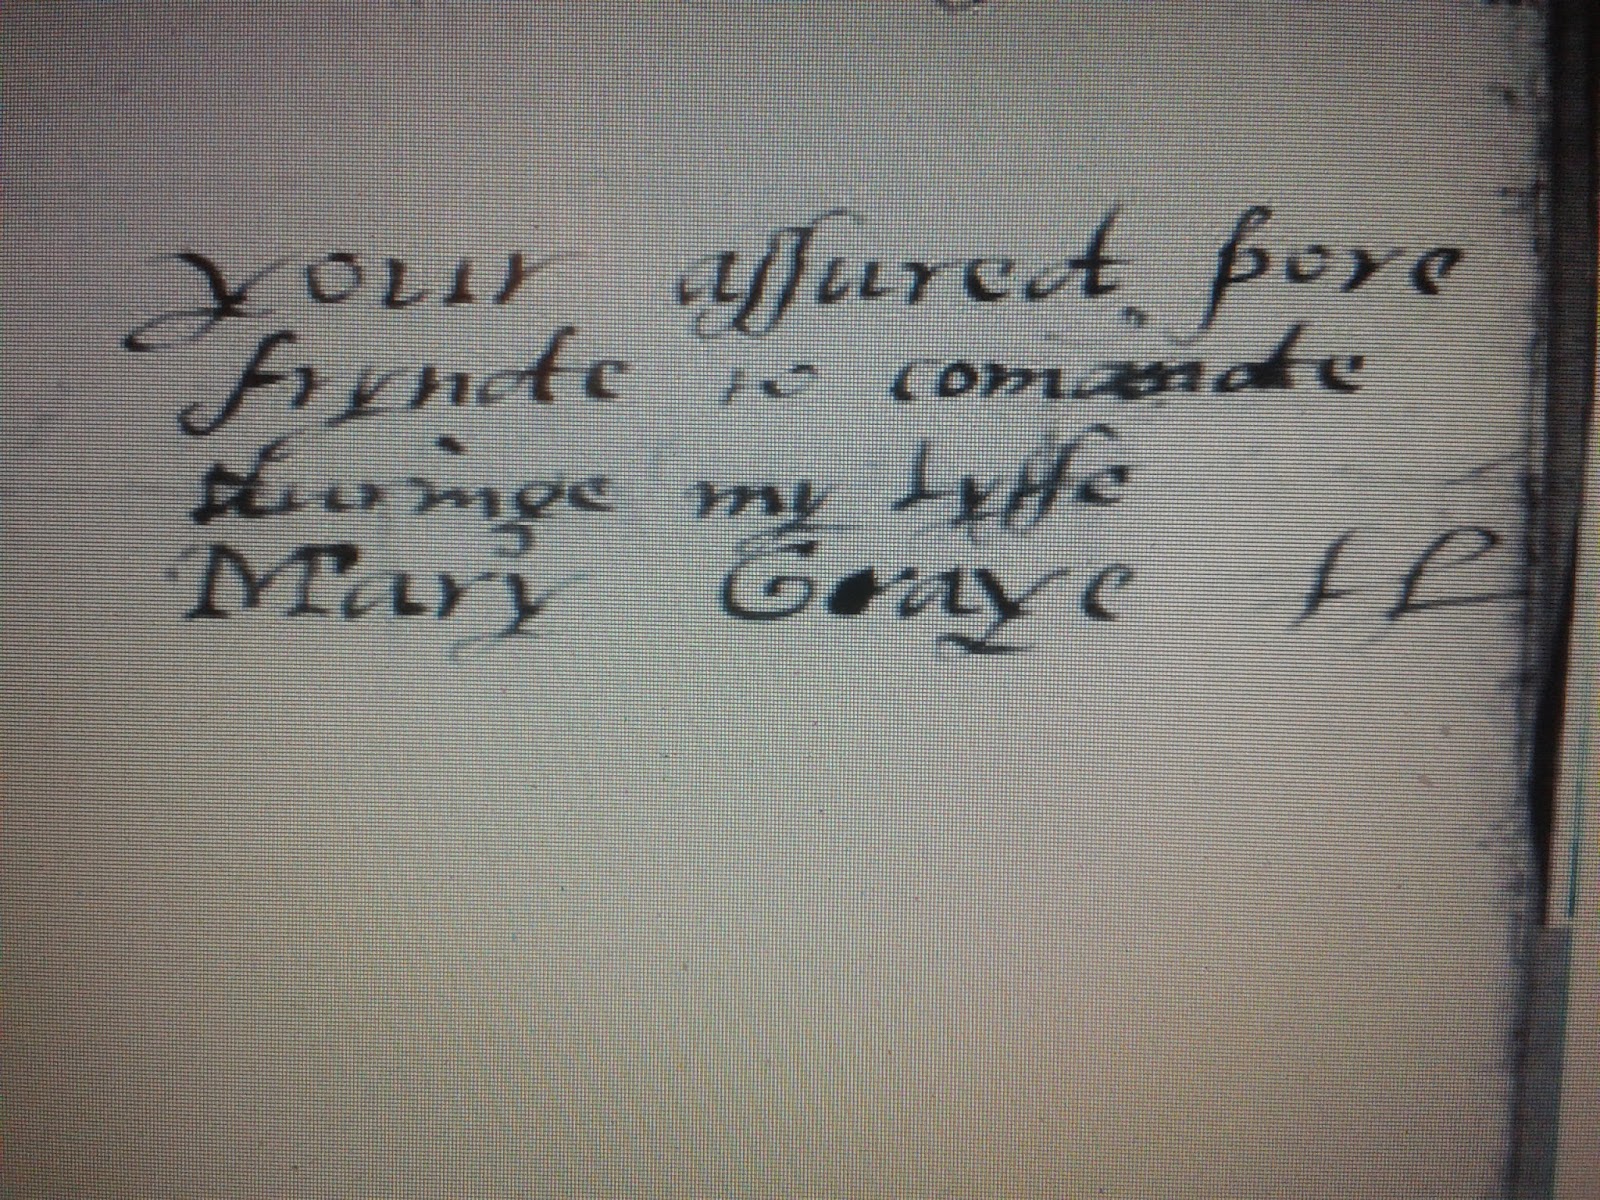 your assured pore
frynde to comande
duringe my lyffe
Mary Graye